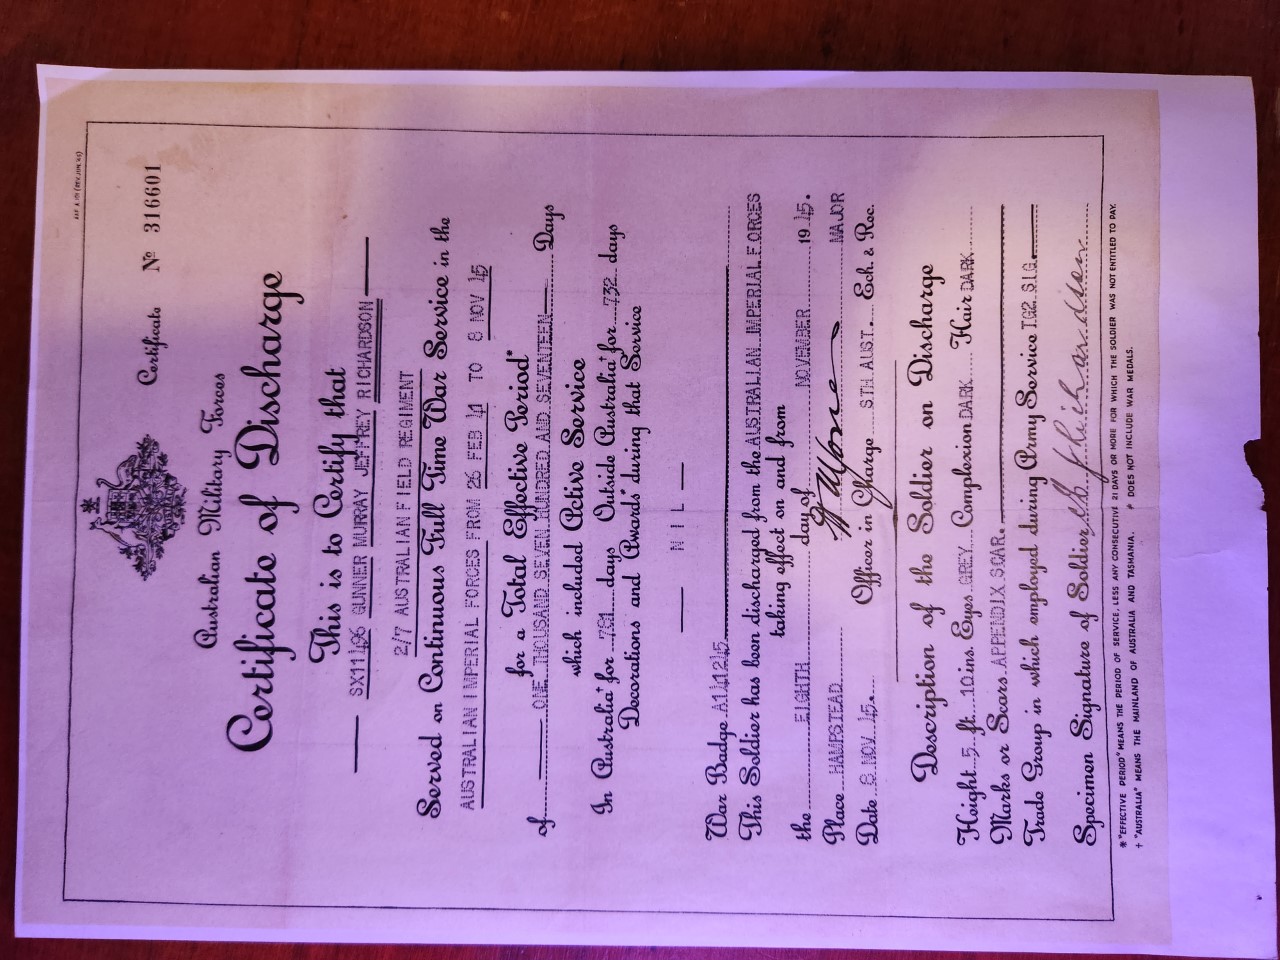 AAF A 170 (REV. JUN. '45)
Certificate No 316601
Australian Military Forces
Certificate of Discharge
This is to Certify that
SX11496 GUNNER MURRAY JEFFREY RICHARDSON
2/7 AUSTRALIAN FIELD REGIMENT
Served on Continuous Full Time War Service in the
AUSTRALIAN IMPERIAL FORCES FROM 26 FEB 41 TO 8 NOV 45
for a Total Effective Period*
of ONE THOUSAND SEVEN HUNDRED AND SEVENTEEN Days
which included Active Service
In Australia† for 781 days Outside Australia† for 732 days
Decorations and Awards≠ during that Service
— N I L —
War Badge A141245
This Soldier has been discharged from the AUSTRALIAN IMPERIAL FORCES
taking effect on and from
the EIGHTH day of NOVEMBER 1945.
Place HAMPSTEAD MAJOR
Date 8 NOV 45. Officer in Charge STH AUST. Ech. & Rec.
Description of the Soldier on Discharge
Height 5 ft. 10 ins. Eyes GREY Complexion DARK Hair DARK
Marks or Scars APPENDIX SCAR.
Trade Group in which employed during Army Service TG2 SIG.
Specimen Signature of Soldier Richardson
* "EFFECTIVE PERIOD" MEANS THE PERIOD OF SERVICE, LESS ANY CONSECUTIVE 21 DAYS OR MORE FOR WHICH THE SOLDIER WAS NOT ENTITLED TO PAY.
† "AUSTRALIA" MEANS THE MAINLAND OF AUSTRALIA AND TASMANIA. ≠ DOES NOT INCLUDE WAR MEDALS.